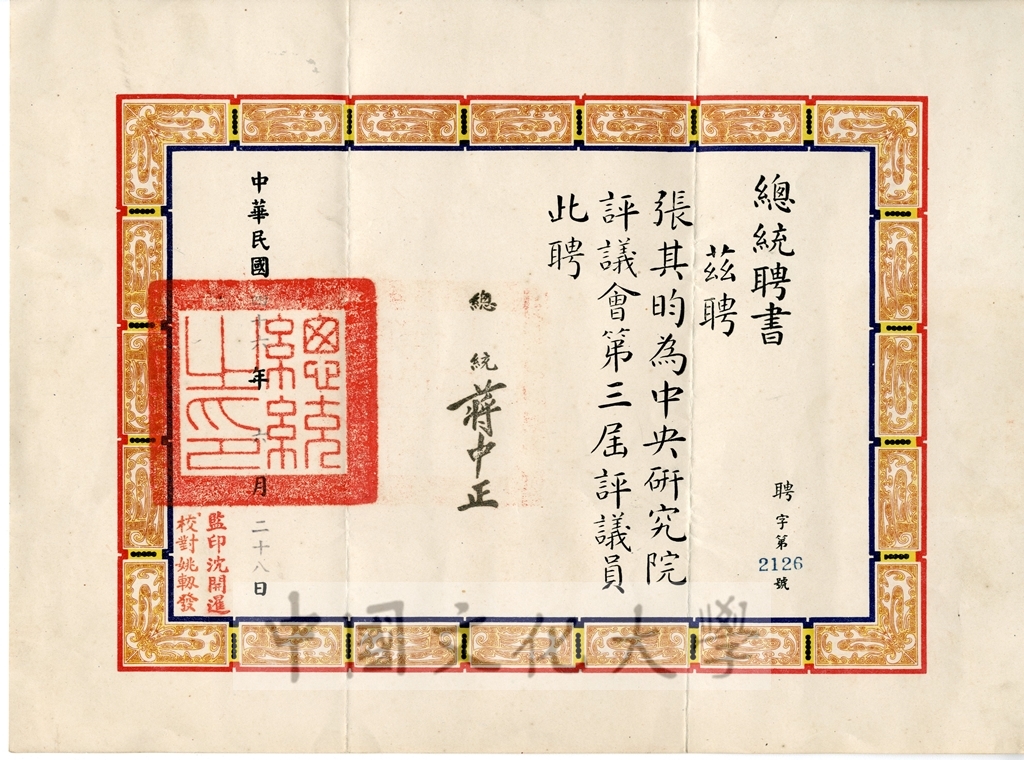 總統聘書
聘字第2126號
茲聘
張其昀為中央研究院
評議會第三屆評議員
此聘
總統 蔣中正
中華民國四十六年六月二十八日
總統之印
監印沈開暹
校對姚轫發
中國文化大學